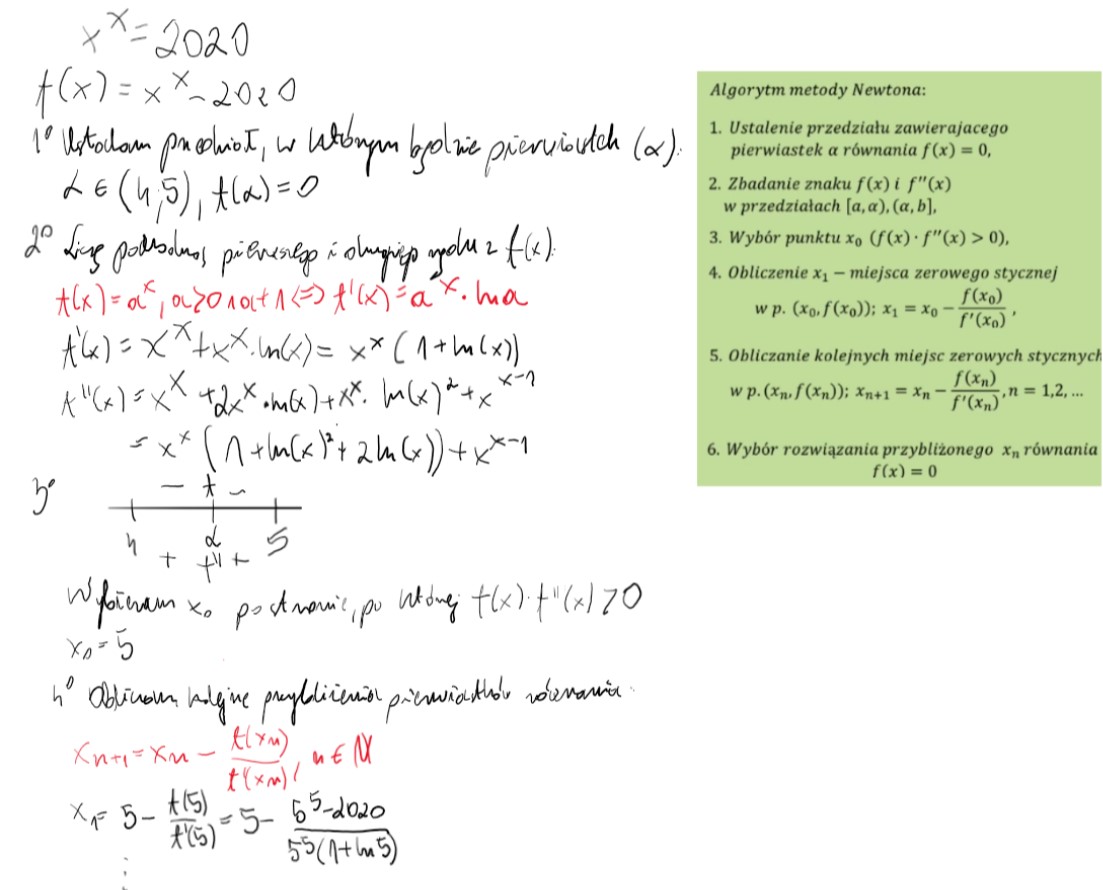 x^x = 2020
f(x) = x^x - 2020
1° Ustalam przedział, w którym będzie pierwiastek (α).
α ∈ (4,5), f(α) = 0
2° Liczę pochodną pierwszego i drugiego rzędu z f(x).
f(x) = a^x, a>0 ∧ a≠1 <=> f'(x) = a^x · ln a
f'(x) = x^x + x^x · ln(x) = x^x (1 + ln(x))
f''(x) = x^x + 2x^x · ln(x) + x^x · ln(x)^2 + x^{x-1}
= x^x (1 + ln(x)^2 + 2 ln(x)) + x^{x-1}
3°
- f -
4 α 5
+ f'' +
Wybieram x_0 po stronie, po której f(x) · f''(x) > 0
x_0 = 5
4° Obliczam kolejne przybliżenia pierwiastków równania.
x_{n+1} = x_n - f(x_n)/f'(x_n), n ∈ N
x_1 = 5 - f(5)/f'(5) = 5 - (5^5 - 2020)/(5^5(1 + ln 5))
⋮
Algorytm metody Newtona:
1. Ustalenie przedziału zawierajacego
pierwiastek α równania f(x) = 0,
2. Zbadanie znaku f(x) i f''(x)
w przedziałach [a, α), (α, b],
3. Wybór punktu x_0 (f(x) · f''(x) > 0),
4. Obliczenie x_1 − miejsca zerowego stycznej
w p. (x_0, f(x_0)); x_1 = x_0 − f(x_0)/f'(x_0) ,
5. Obliczanie kolejnych miejsc zerowych stycznych
w p. (x_n, f(x_n)); x_{n+1} = x_n − f(x_n)/f'(x_n) , n = 1,2, ...
6. Wybór rozwiązania przybliżonego x_n równania
f(x) = 0